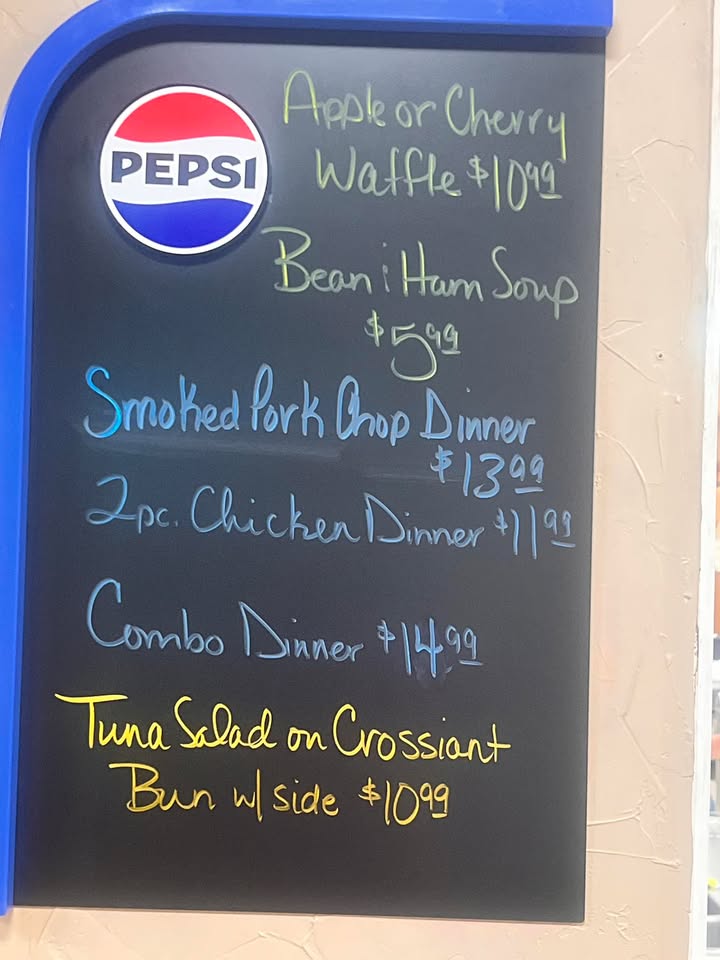 PEPSI
Apple or Cherry
Waffle $10.99
Bean & Ham Soup
$5.99
Smoked Pork Chop Dinner
$13.99
2pc. Chicken Dinner $11.99
Combo Dinner $14.99
Tuna Salad on Crossiant
Bun w/ side $10.99